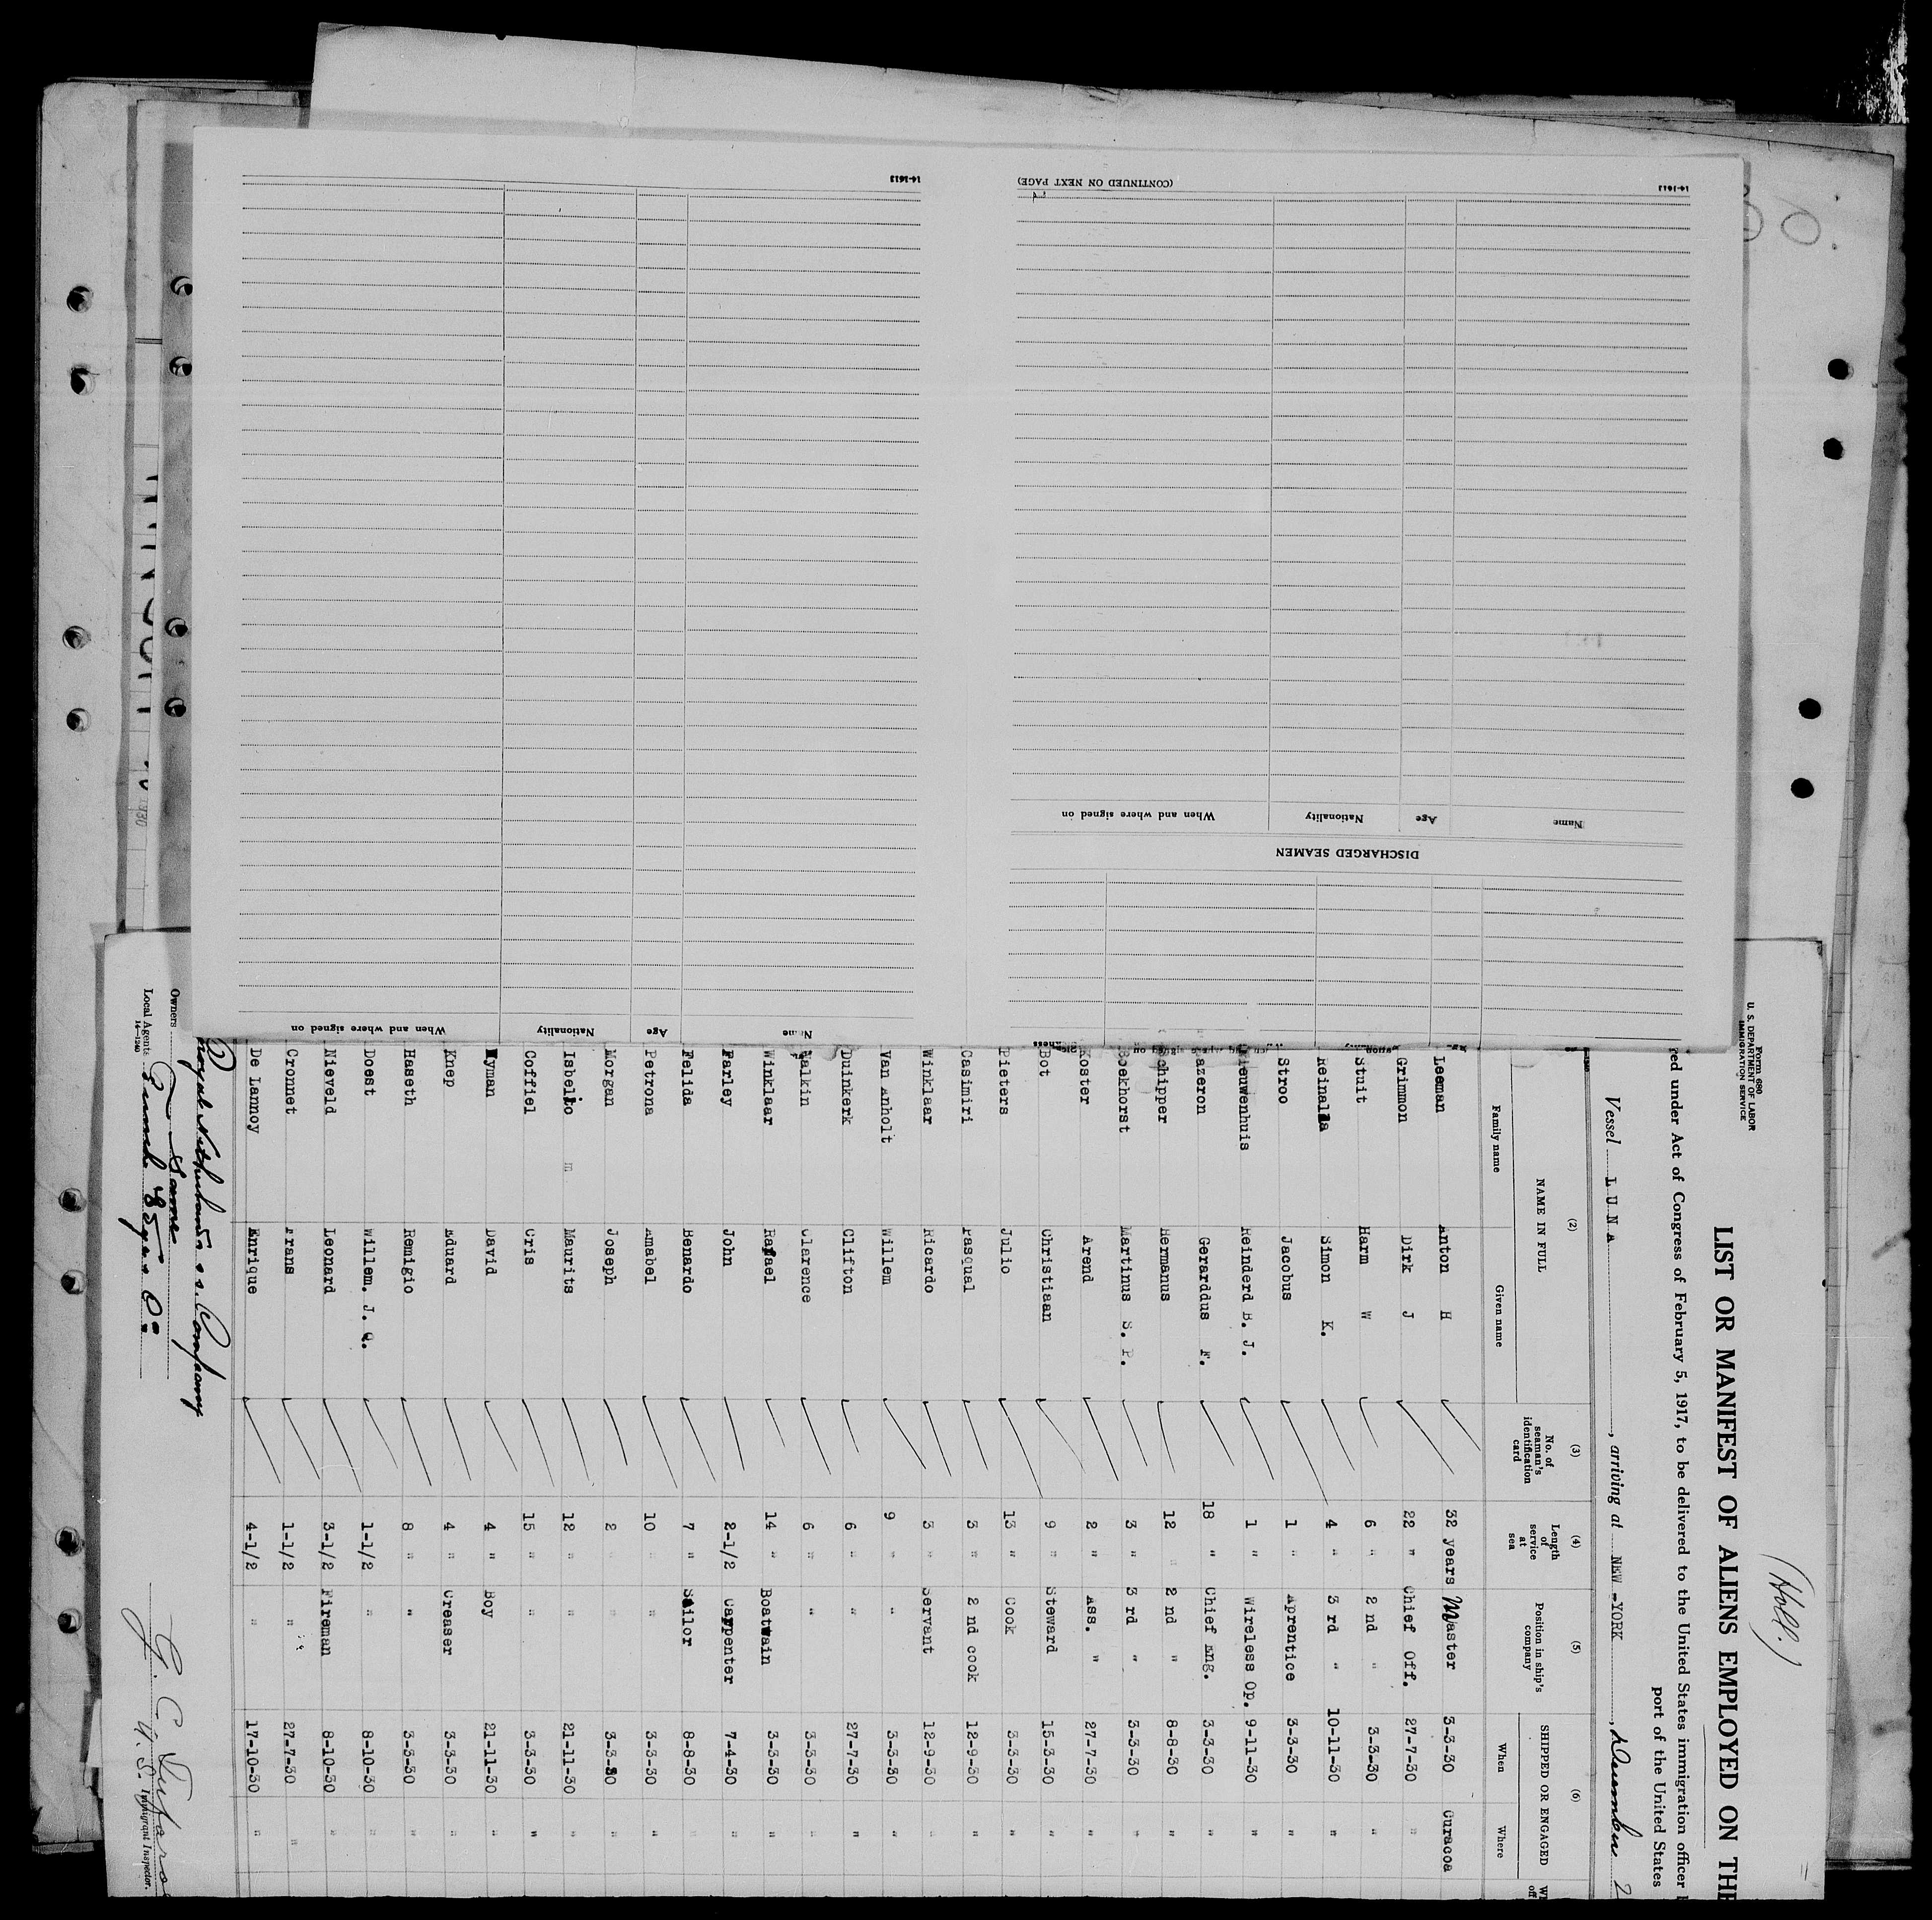 14-1613
(CONTINUED ON NEXT PAGE)
14-1613
Name
Age
Nationality
When and where signed on
DISCHARGED SEAMEN
Name
Age
Nationality
When and where signed on
Form 680
U. S. DEPARTMENT OF LABOR
IMMIGRATION SERVICE
(Holl.)
LIST OR MANIFEST OF ALIENS EMPLOYED ON THE
red under Act of Congress of February 5, 1917, to be delivered to the United States immigration officer
port of the United States
Vessel LUNA, arriving at NEW-YORK, December 2
(2) (3) (4) (5) (6)
NAME IN FULL
Family name Given name
No. of seaman's identification card
Length of service at sea
Position in ship's company
SHIPPED OR ENGAGED
When Where
Leeman Anton H 32 years Master 3-3-30 Curacoa
Grimmon Dirk J 22 " Chief Off. 27-7-30 "
Stuit Harm W 6 " 2 nd " 3-3-30 "
Reinalda Simon K. 4 " 3 rd " 10-11-30 "
Stroo Jacobus 1 " Aprentice 3-3-30 "
Nieuwenhuis Reinderd B. J. 1 " Wireless Op. 9-11-30 "
azeron Gererddus F. 18 " Chief Eng. 3-3-30 "
Schipper Hermanus 12 " 2 nd " 8-8-30 "
Boekhorst Martinus S. P. 3 " 3 rd " 3-3-30 "
Koster Arend 2 " Ass. " 27-7-30 "
Bot Christiaan 9 " Steward 15-3-30 "
Pieters Julio 13 " Cook 3-3-30 "
Casimiri Pasqual 3 " 2 nd cook 12-9-30 "
Winklaar Ricardo 3 " Servant 12-9-30 "
Van Anholt Willem 9 " " 3-3-30 "
Duinkerk Clifton 6 " " 27-7-30 "
alkin Clarence 6 " " 3-3-30 "
Winklaar Rafael 14 " Boatwain 3-3-30 "
Farley John 2-1/2 Carpenter 7-4-30 "
Felida Benardo 7 " Sailor 8-8-30 "
Petrona Amabel 10 " " 3-3-30 "
Morgan Joseph 2 " " 3-3-30 "
Isbello Maurits 12 " " 21-11-30 "
Coffiel Cris 15 " " 3-3-30 "
Hyman David 4 " Boy 21-11-30 "
Knep Eduard 4 " Greaser 3-3-30 "
Haseth Remigio 8 " " 3-3-30 "
Doest Willem. J. Q. 1-1/2 " 8-10-30 "
Nieveld Leonard 3-1/2 Fireman 8-10-30 "
Cronnet Frans 1-1/2 " 27-7-30 "
De Lannoy Enrique 4-1/2 " 17-10-30 "
Royal Netherlands s.s. Company
Owners Same
Local Agents Funch Edye & Co.
14-1240
Immigrant Inspector.